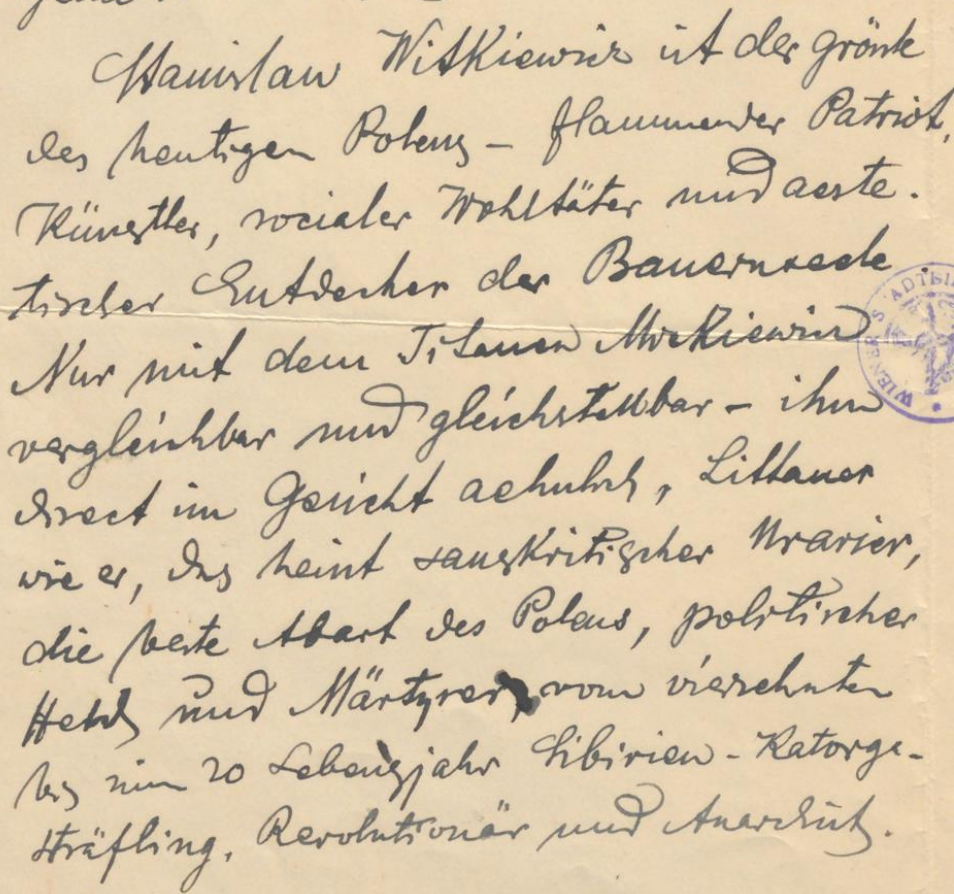 Stanislaw Witkiewicz ist der grösste
des heutigen Polens – flammender Patriot,
Künstler, socialer Wohltäter und aeste-
tischer Entdecker der Bauernseele.
Nur mit dem Titanen Mickiewicz
vergleichbar und gleichstellbar – ihm
direct im Gesicht aehnlich, Littauer
wie er, das heisst sanskritischer Urarier,
die beste Abart des Polens, politischer
Held und Märtyrer, vom vierzehnten
bis zum 20 Lebensjahr Sibirien-Katorga-
sträfling, Revolutionär und Anarchist.
WIENER STADTBI